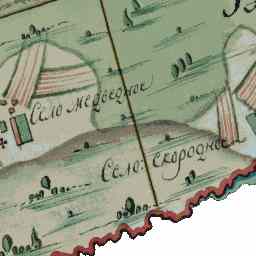 Село медвѣдное
Село: скородное